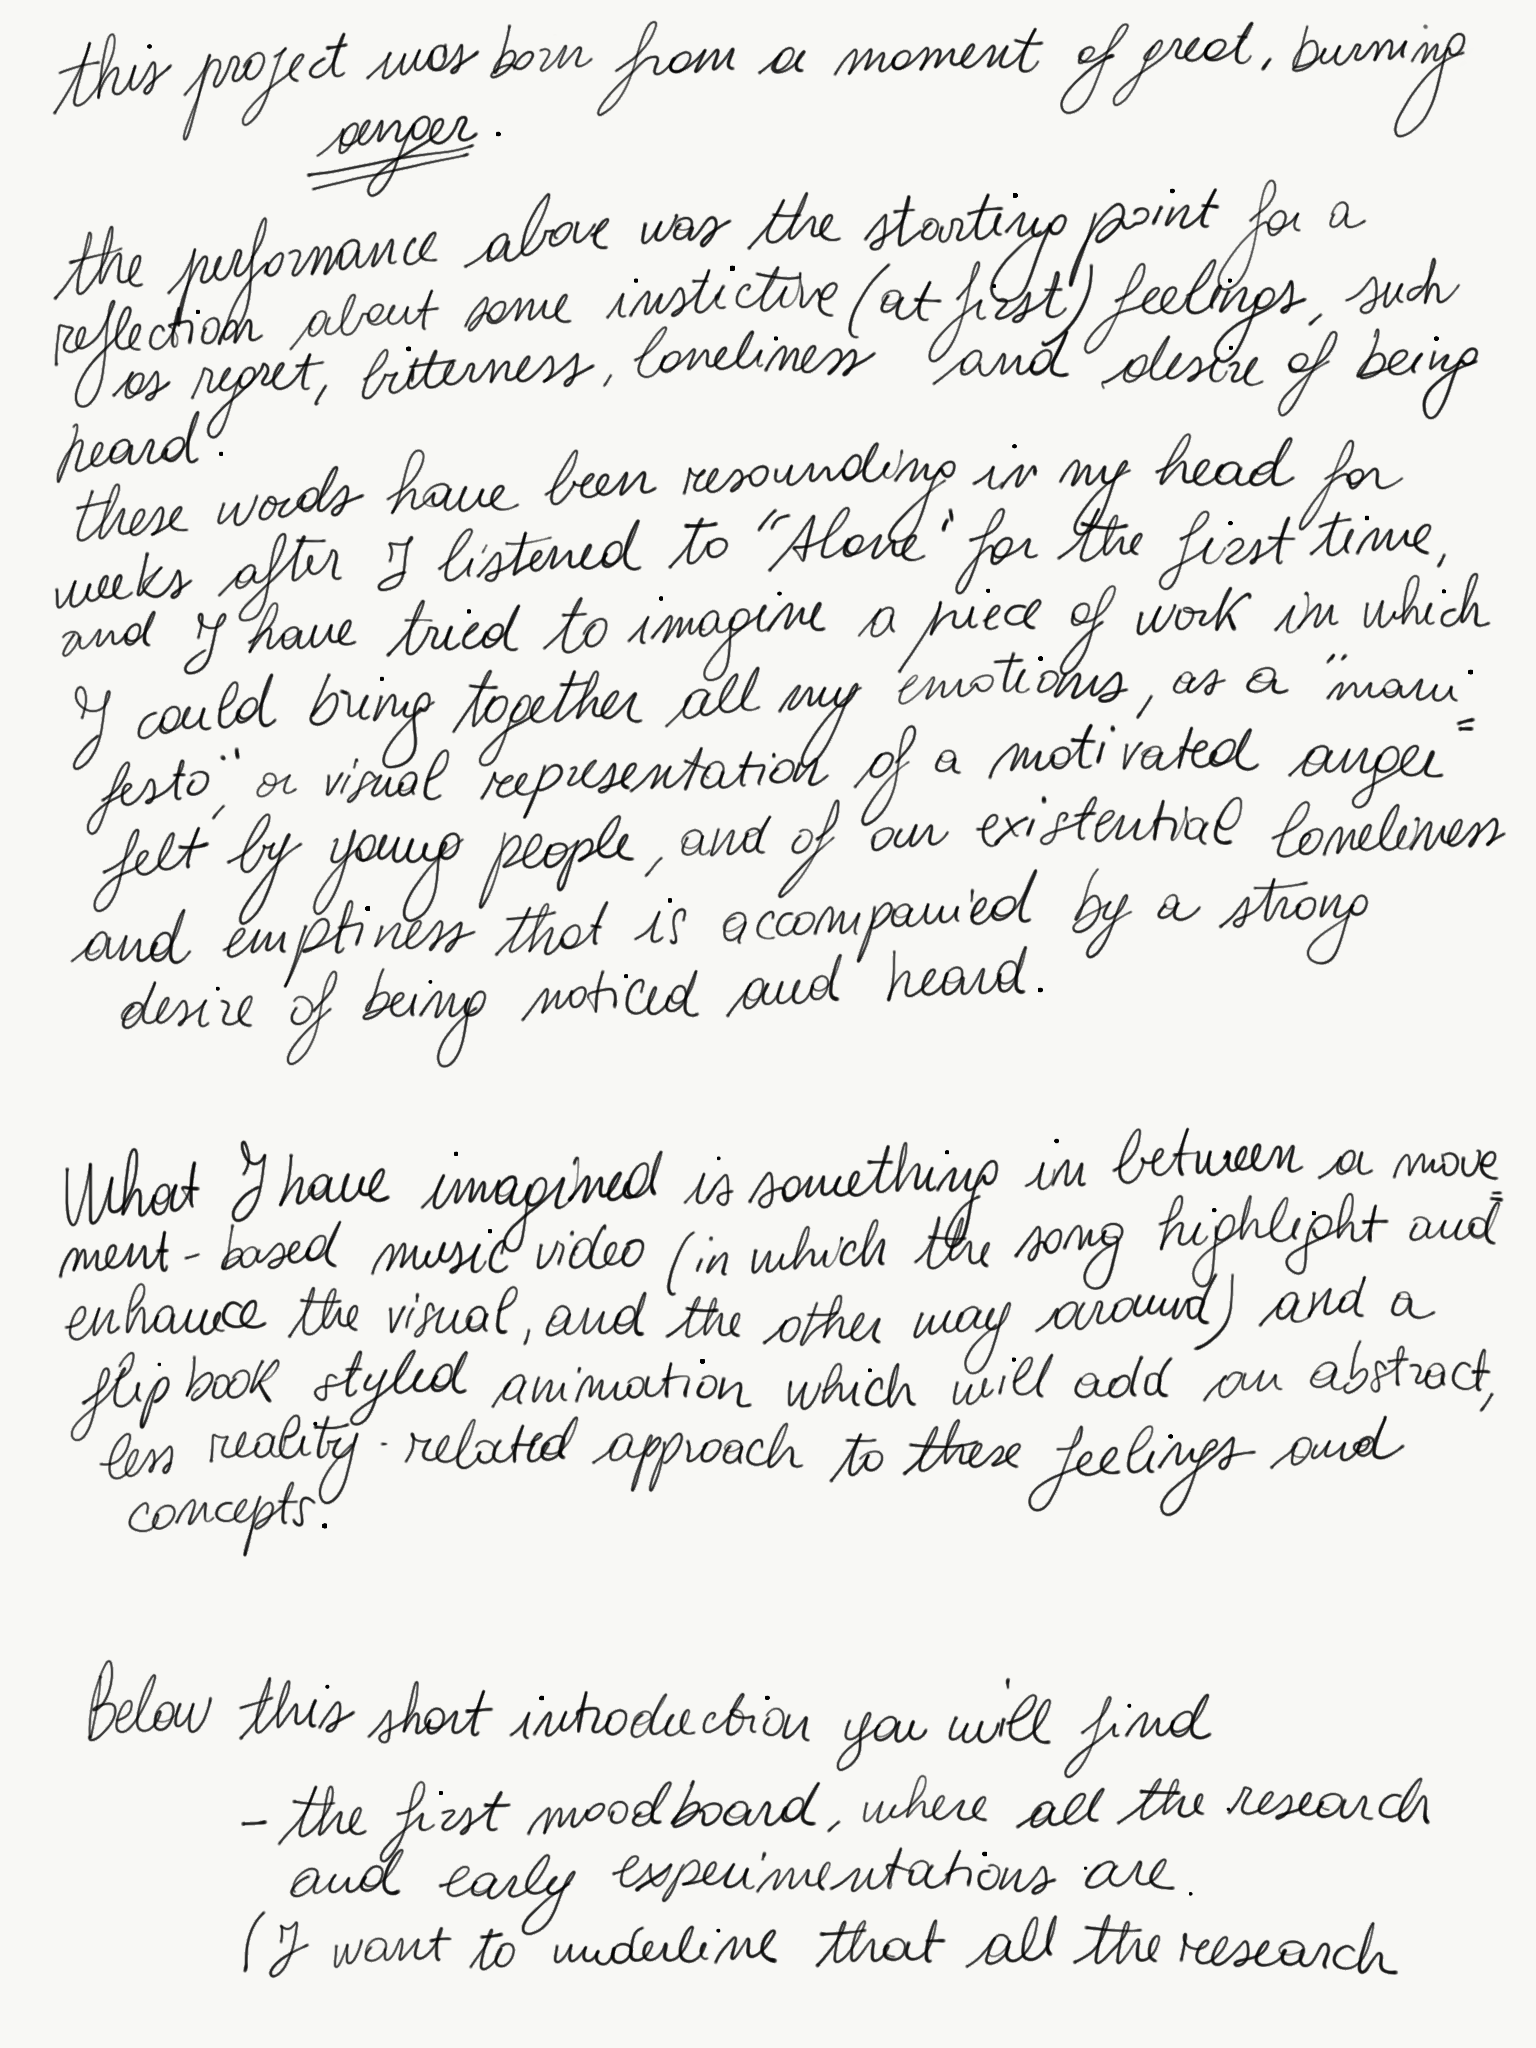 this project was born from a moment of great, burning
anger.
the performance above was the starting point for a
reflection about some instictive (at first) feelings, such
as regret, bitterness, loneliness and desire of being
heard.
these words have been resounding in my head for
weeks after I listened to "Alone" for the first time,
and I have tried to imagine a piece of work in which
I could bring together all my emotions, as a "mani=
festo", or visual representation of a motivated anger
felt by young people, and of an existential loneliness
and emptiness that is accompanied by a strong
desire of being noticed and heard.
What I have imagined is something in between a move=
ment-based music video (in which the song highlight and
enhance the visual, and the other way around) and a
flip book styled animation which will add an abstract,
less reality-related approach to these feelings and
concepts.
Below this short introduction you will find
- the first moodboard, where all the research
and early experimentations are.
(I want to underline that all the research